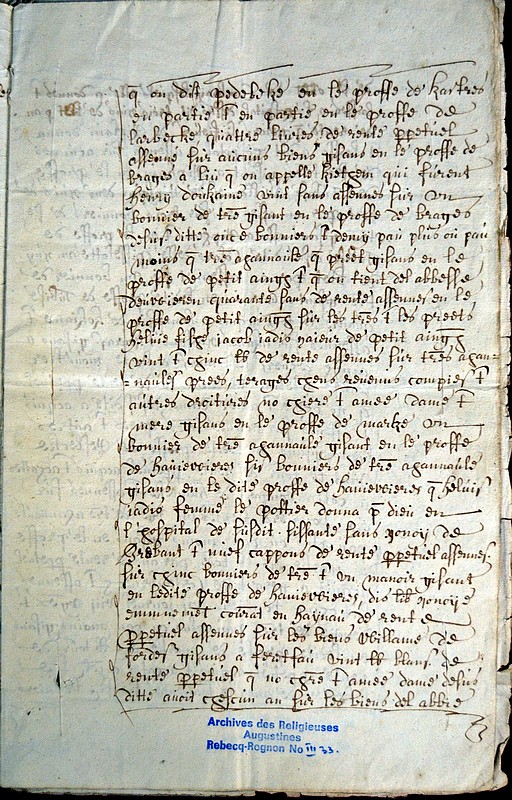 q̄ on dit pedebeke en le proffe de hartres
en partie et en partie en le proffe de
larbecke quattre livres de rente ppetuel
assenne sur aucuns biens gisans en le proffe de
brages a liu q on appelle kietzem qui furent
henry douhaine vint sans assennes sur un
bonnier de tre gisant en le proffe de brages
desus ditte once bonniers et demy pau plus ou pau
moins q tre agannaule q preet gisans en le
proffe de petit aingh et q on tient del abbesse
deuvieren quarante sans de rente assennes en le
proffe de petit aingh sur les tres et les preets
helvie filz jacob jadis maieur de petit aingh
vint et chinc lb de rente assennes sur tres agan-
-naules prees, terages chens revenus compies et
autres droitures no chiere et amee dame et
mere gisans en le proffe de marke un
bonnier de tre agannaule gisant en le proffe
de haniervieres six bonniers de tre agannaule
gisans en le dite proffe de hauiervieres q helvis
jadis femme le pottier donna p dieu en
l hospital de susdit sissante sans monoy de
brebant et nuef cappons de rente ppetuel assennes
sur chinc bonniers de tre et un manoir gisant
en ledite proffe de hauiervieres, dis lb monoye
communemet courat en haynau de rente
ppetuel assennes sur les biens willame de
gisans a vint lb blans de
rente ppetuel q no chre et amee dame desus
ditte avoit chescun an sur les biens del abbie
Archives des Religieuses
Augustines
Rebecq-Rognon No III 33.